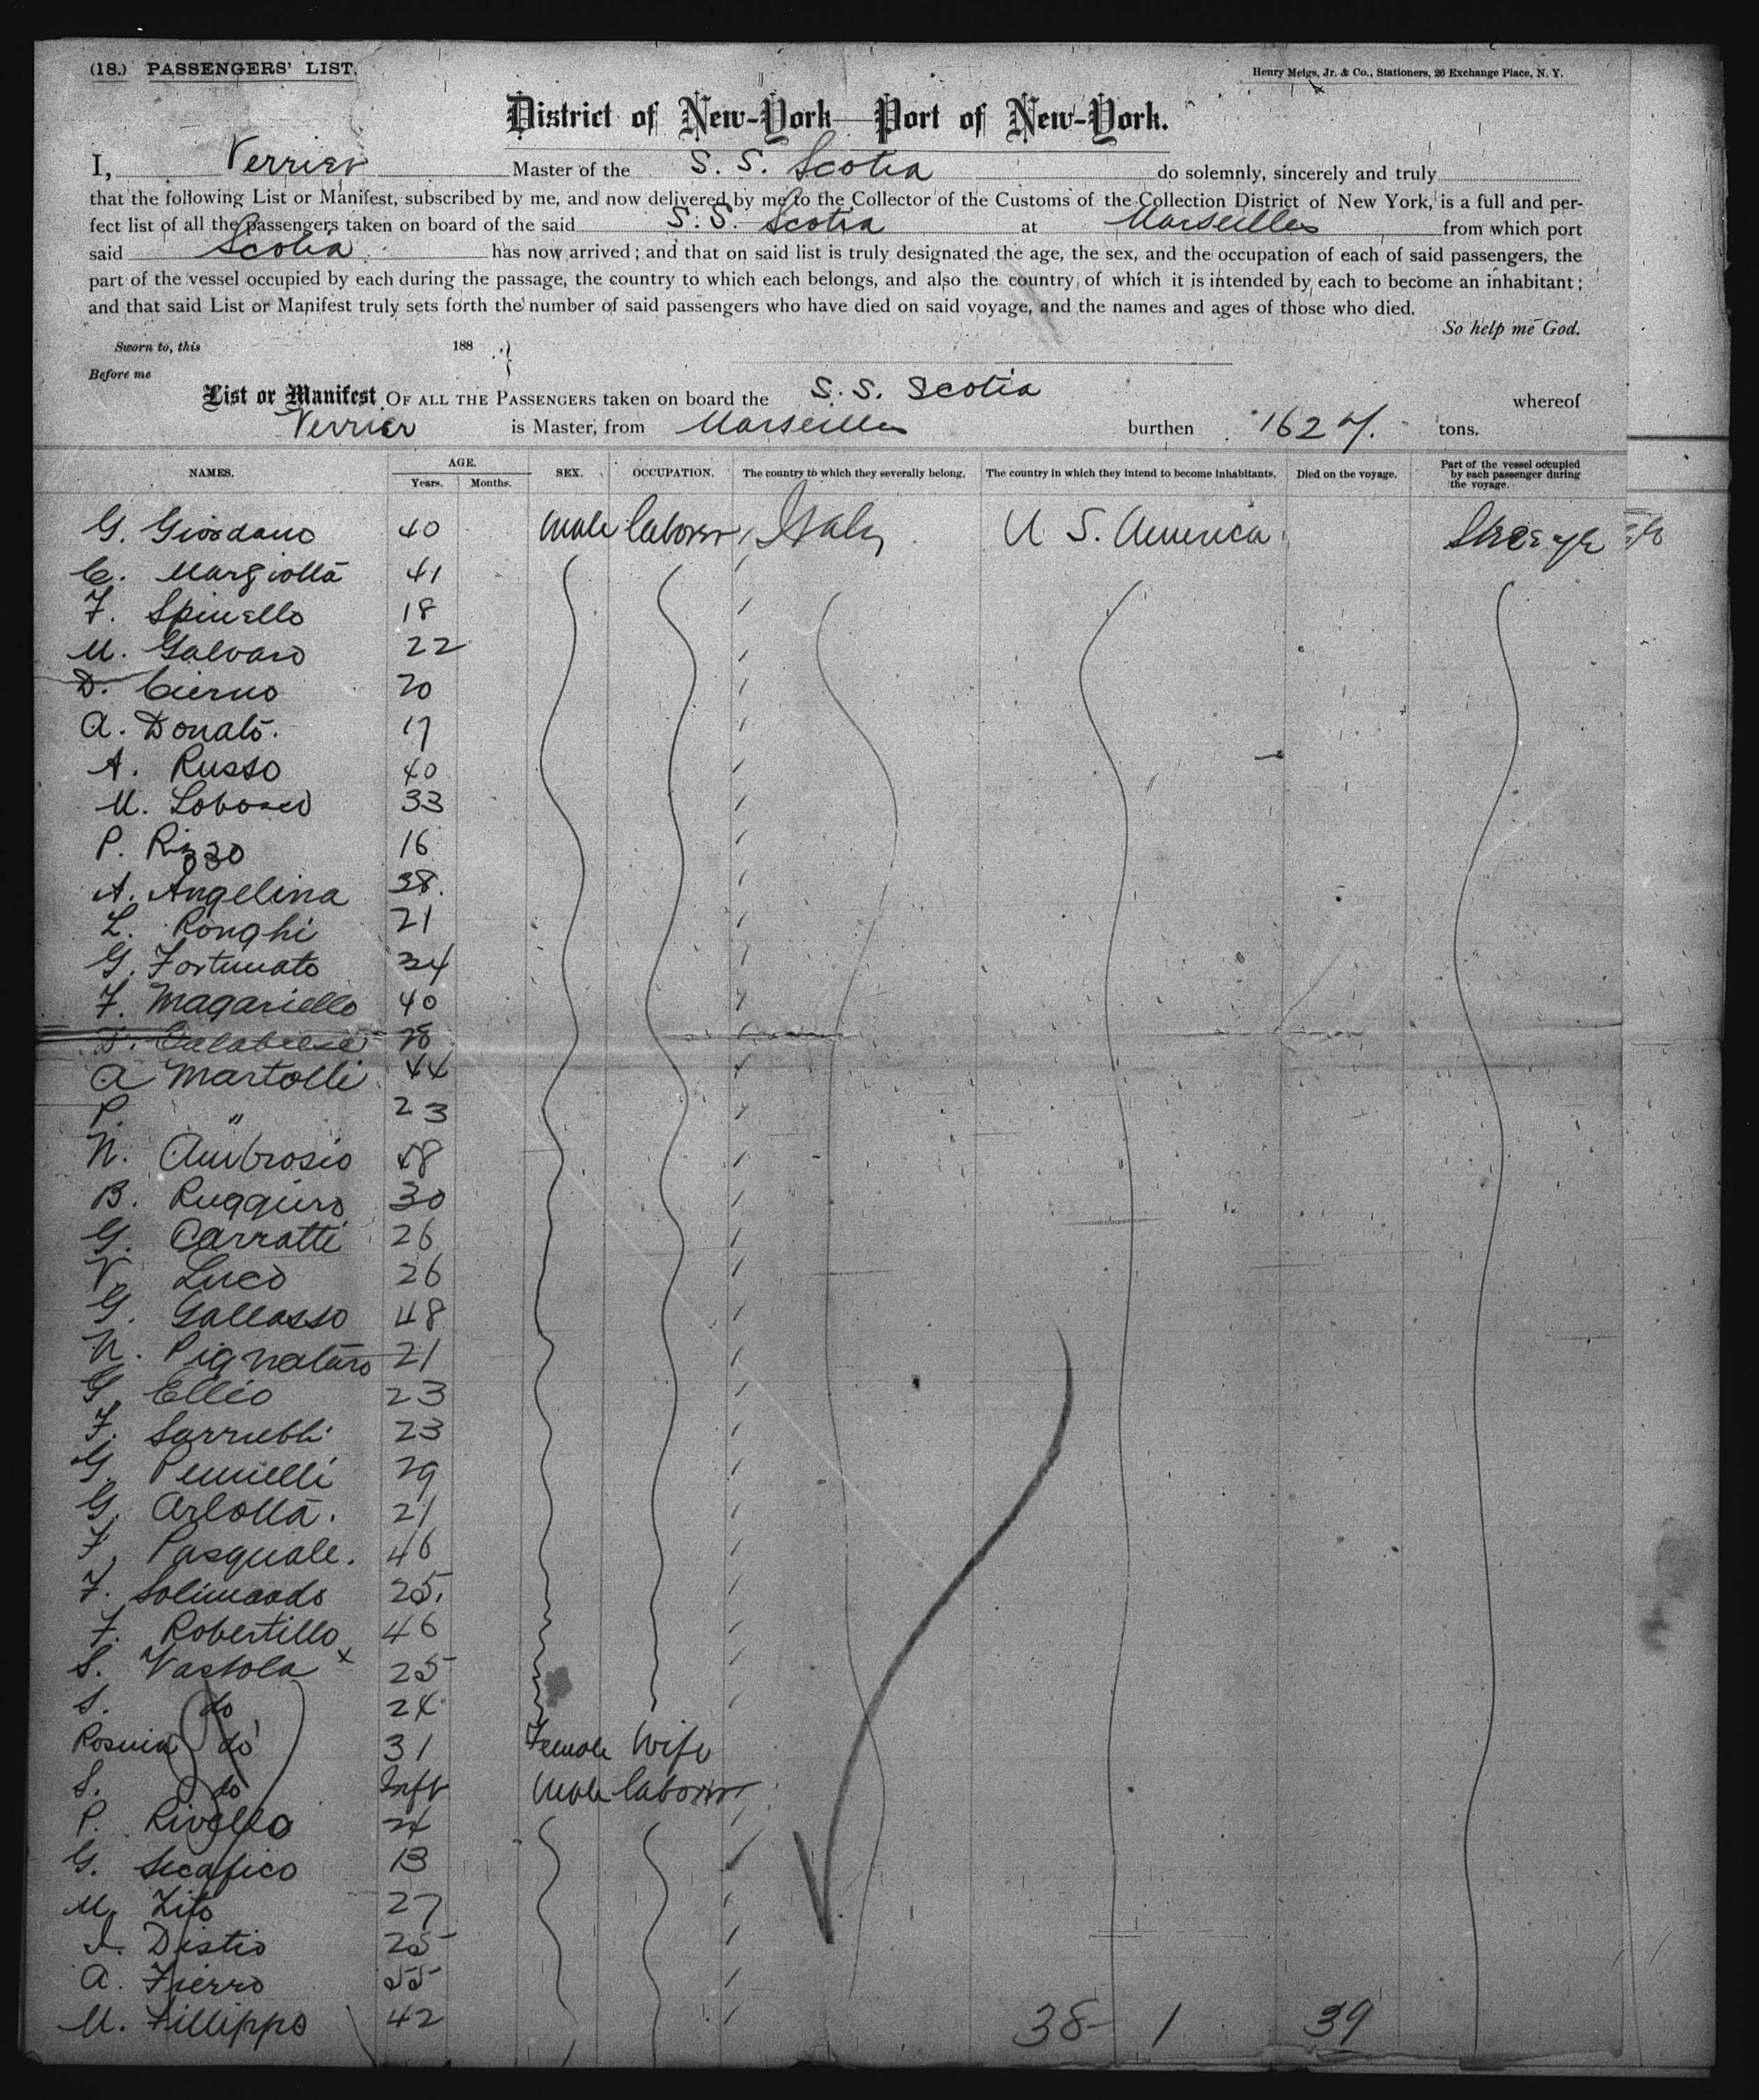 (18.) PASSENGERS' LIST.
Henry Meigs, Jr. & Co., Stationers, 26 Exchange Place, N. Y.
District of New-York—Port of New-York.
I, Verrier Master of the S. S. Scotia do solemnly, sincerely and truly
that the following List or Manifest, subscribed by me, and now delivered by me to the Collector of the Customs of the Collection District of New York, is a full and per-
fect list of all the passengers taken on board of the said S. S. Scotia at Marseilles from which port
said Scotia has now arrived; and that on said list is truly designated the age, the sex, and the occupation of each of said passengers, the
part of the vessel occupied by each during the passage, the country to which each belongs, and also the country of which it is intended by each to become an inhabitant;
and that said List or Manifest truly sets forth the number of said passengers who have died on said voyage, and the names and ages of those who died.
So help me God.
Sworn to, this 188
Before me
List or Manifest OF ALL THE PASSENGERS taken on board the S. S. Scotia whereof
Verrier is Master, from Marseilles burthen 1627. tons.
NAMES. AGE. Years. Months. SEX. OCCUPATION. The country to which they severally belong. The country in which they intend to become inhabitants. Died on the voyage. Part of the vessel occupied by each passenger during the voyage.
G. Giordano 40 Male laborer Italy U S. America Steerage
C. Margiotta 41
F. Spinello 18
M. Galvaro 22
D. Cierno 20
A. Donato. 17
A. Russo 40
M. Lobosco 33
P. Rizzo 16
A. Angelina 38.
L. Ronghi 21
G. Fortunato 34
F. Magariello 40
Calabrese 28
A Martolli 44
P. " 23
N. Ambrosio 48
B. Ruggiero 30
G. Carratti 26
V. Luco 26
G. Gallasso 48
N. Pignataro 21
G. Ellio 23
F. Sarrubbi 23
G. 29
G. Arlotta. 21
F. Pasquale. 46
F. 25.
F. Robertillo 46
S. Vastola x 25
S. do 24
Rosina do 31 Female Wife
S. do Inft Male laborer
P. Rivello 24
G. 13
M. Zito 27
Distio 25
A. Fierro 55
M. Fillippo 42
38 - 1 39